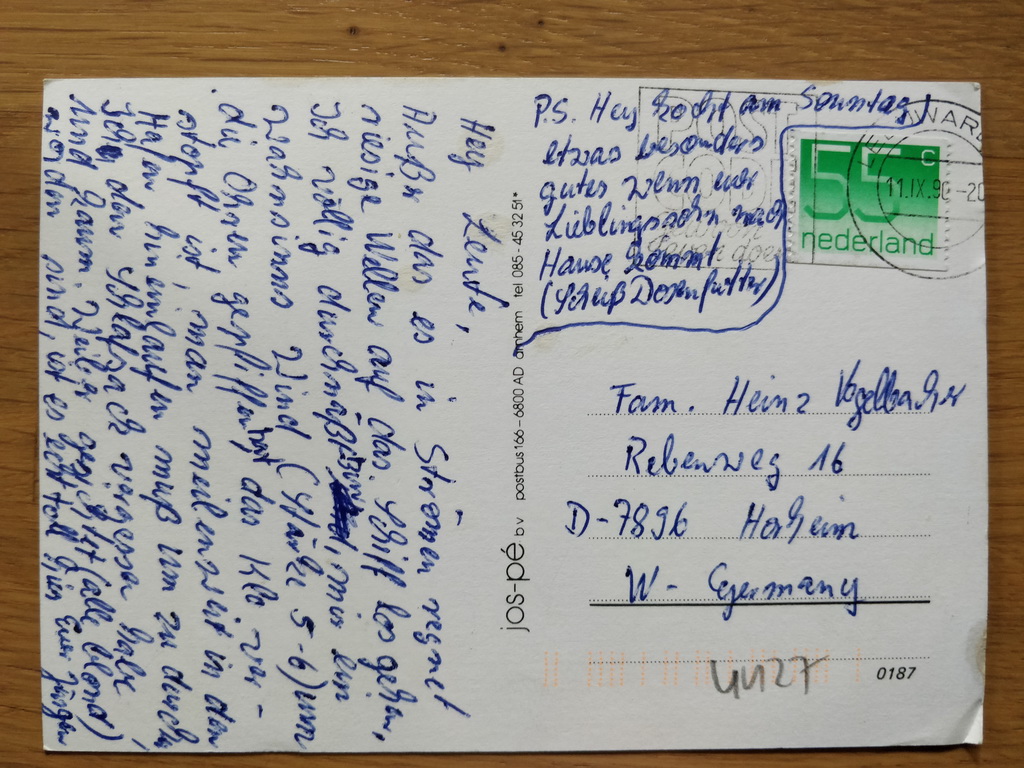 Hey Leute,
Außer das es in Strömen regnet
riesige Wellen auf das Schiff los gehen,
Ich völlig durchnäßt bin, mir ein
Wahnsinns Wind (Stärke 5-6) um
die Ohren gepfiffen, das Klo ver-
stopft ist, man meilenweit in den
Hafen hineinlaufen muß um zu duschen
Ich den Schlafsack vergessen habe,
Und kaum Weiber (alle blond)
worden sind, ist es echt toll hier Euer Jürgen
P.S. Hey kocht am Sonntag
etwas besonders
gutes wenn euer
Lieblingssohn nach
Hause kommt
(Scheiß Dosenfutter)
55 c
nederland
11.IX.90-20
POST
jos-pé b v postbus 166 - 6800 AD arnhem tel 085 - 45 32 51*
Fam. Heinz Vogelbacher
Rebenweg 16
D-7896 Horheim
W-Germany
4427
0187